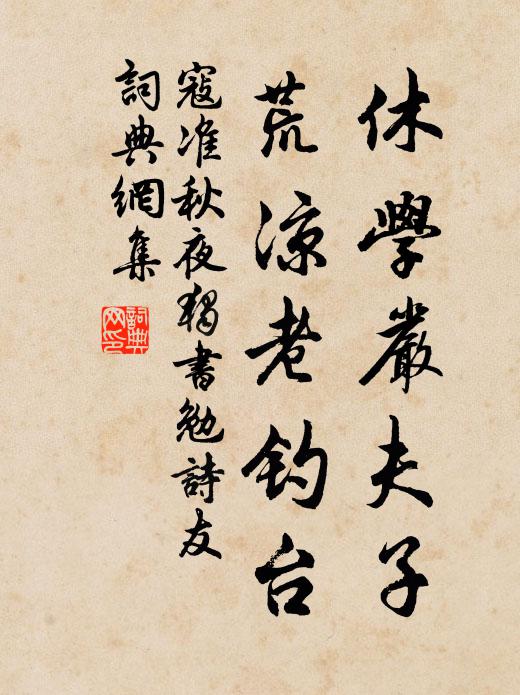 休學嚴夫子
荒凉老钓台
寇准秋夜獨書勉詩友
詞典網集
詞典
网印